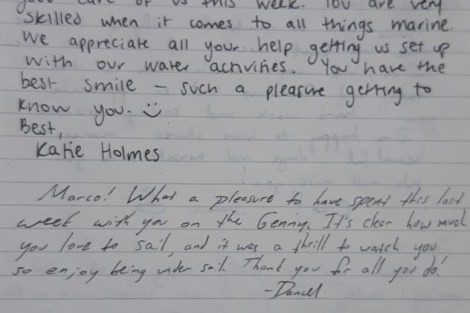 good care of us this week. You are very
skilled when it comes to all things marine.
We appreciate all your help getting us set up
with our water activities. You have the
best smile – such a pleasure getting to
know you. :)
Best,
Katie Holmes
Marco! What a pleasure to have spent this last
week with you on the Genny. It's clear how much
you love to sail, and it was a thrill to watch you
so enjoy being under sail. Thank you for all you do!
-Daniel